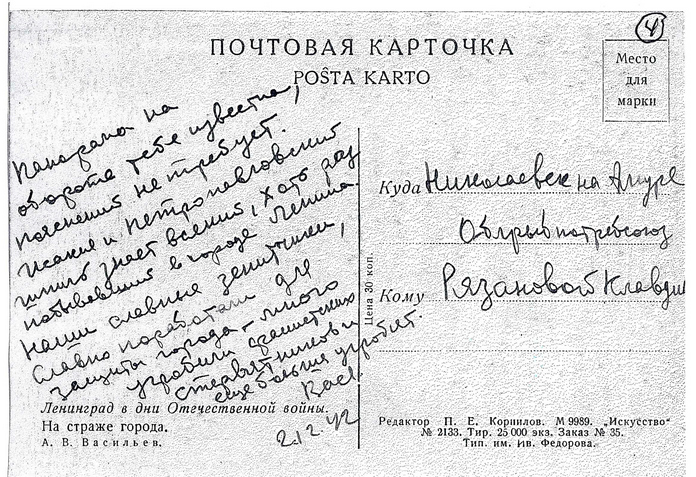 4
ПОЧТОВАЯ КАРТОЧКА
POŜTA KARTO
Место
для
марки
Панорама на
обороте тебе известна,
пояснений не требует.
Исакие и Петропавловский
шпиль знает всякий, хоть раз
побывавший в городе Ленина.
Наши славные зенитчики,
славно поработали для
защиты города – много
угробили фашистских
стервятников и
еще больше угробит.
Вас.
2.12.42
Куда Николаевск на Амуре
Облрыбпотребсоюз
Кому Рязановой Клавдии
Цена 30 коп.
Ленинград в дни Отечественной войны.
На страже города.
А. В. Васильев.
Редактор П. Е. Корнилов. М 9989. „Искусство“
№ 2133. Тир. 25 000 экз. Заказ № 35.
Тип. им. Ив. Федорова.